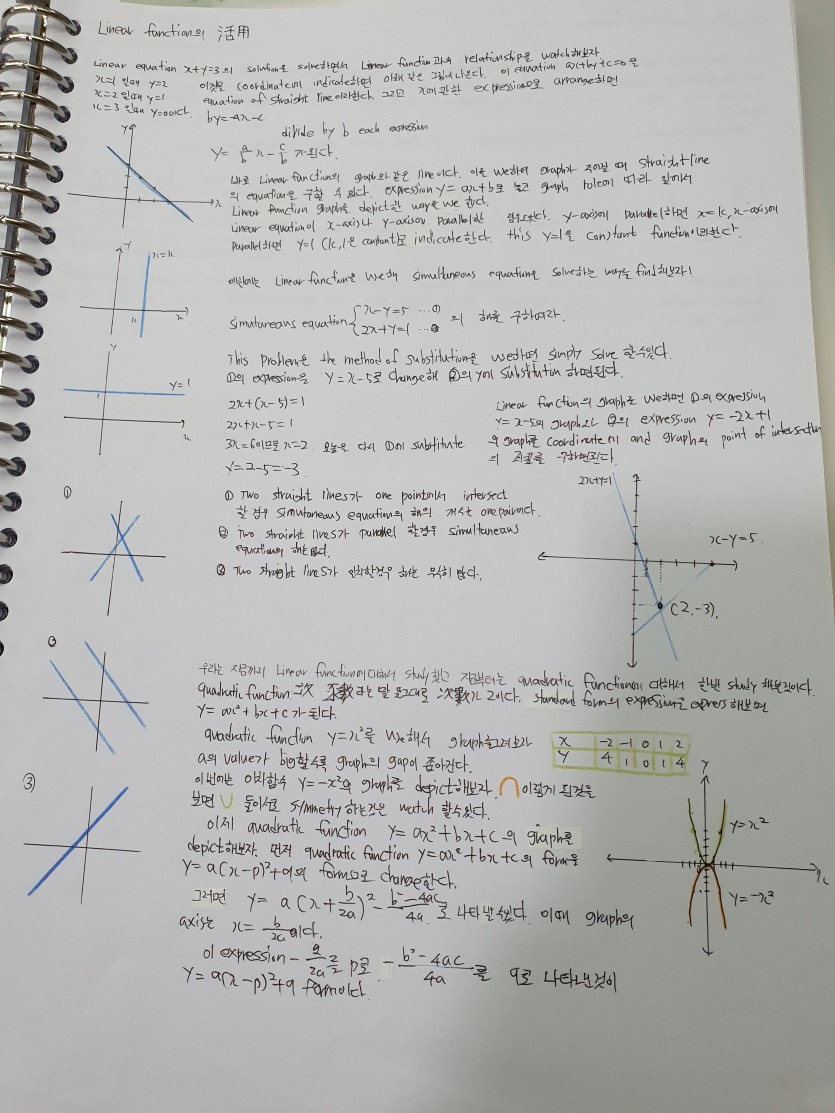 Linear function의 活用
Linear equation x+y=3의 solution을 solve하면서 Linear function과의 relationship을 watch해보자
x=1 일때 y=2 이것을 coordinate에 indicate하면 아래 같은 그림이 나온다. 이 equation ax+by+c=0을
x=2 일때 y=1 equation of straight line이라한다 그리고 x에 관한 expression으로 arrange하면
x=3 일때 y=0이다. by=-ax-c
divide by b each expression
y= a/b x - c/b 가 된다.
바로 Linear function의 graph와 같은 line이다. 이를 use하여 graph가 주어질 때 straight line
의 equation을 구할 수 있다. expression y=ax+b로 놓고 graph 따라 앞에서
Linear function graph를 depict한 way를 use 한다.
Linear equation이 x-axis나 y-axis와 parallel한 경우도있다. y-axis에 parallel하면 x=k, x-axis에
parallel하면 y=l (k, l은 constant)로 indicate한다. this y=l을 constant function이라한다.
y
x
y
x=k
k
x
이번에는 Linear function을 use해 simultaneous equation을 solve하는 way를 find해보자!
simutaneous equation { x-y=5 … ①
2x+y=1 … ② 의 해를 구하여라.
y
y=1
x
This problem을 the method of substitution을 use하면 simply solve 할수있다.
①의 expression을 y=x-5로 change해 ②의 y에 substitution 하면된다.
2x+(x-5)=1
2x+x-5=1
3x=6이므로 x=2. 다시 ①에 substitute
y=2-5=-3.
Linear function의 graph로 use하면 ①의 expression
y=x-5의 graph와 ②의 expression y=-2x+1
의 graph를 coordinate에 and graph의 point of intersection
의 좌표를 구하면된다.
2x+y=1
x-y=5.
(2,-3),
①
① Two straight lines가 one point에서 intersect
할 경우 simutaneous equation의 해의 개수는 one pair이다.
② Two straight lines가 parallel 할경우 simultaneous
equation의 해는없다.
③ Two straight lines가 일치한경우 해는 무수히 많다.
②
우리는 지금까지 Linear function에대해서 study했고 지금부터는 quadratic function에 대해서 한번 study 해볼것이다.
quadratic function 二次 函數라는 말 그대로 次數가 2이다. standard form의 expression을 express해보면
y=ax²+bx+c가 된다.
quadratic function y=x²를 use해서 graph를그려보자
x -2 -1 0 1 2
y 4 1 0 1 4
a의 value가 big할수록 graph의 gap이 좁아진다.
이번에는 이차함수 y=-x²의 graph를 depict해보자. ∩ 이렇게 된것을
보면 ∪ 둘이서로 symmetry 하는것을 watch 할수있다.
③)
이제 quadratic function y=ax²+bx+c의 graph를
depict해보자. 먼저 quadratic function y=ax²+bx+c의 form을
y=a(x-p)²+q의 form으로 change한다.
그러면 y= a(x+ b/2a)² - b²-4ac/4a 로 나타낼수있다. 이때 graph의
axis는 x= b/2a 이다.
이 expression - a/2a 를 p로 - b²-4ac/4a 를 q로 나타낸것이
y=a(x-p)²+q form이다.
y
y=x²
x
y=-x²